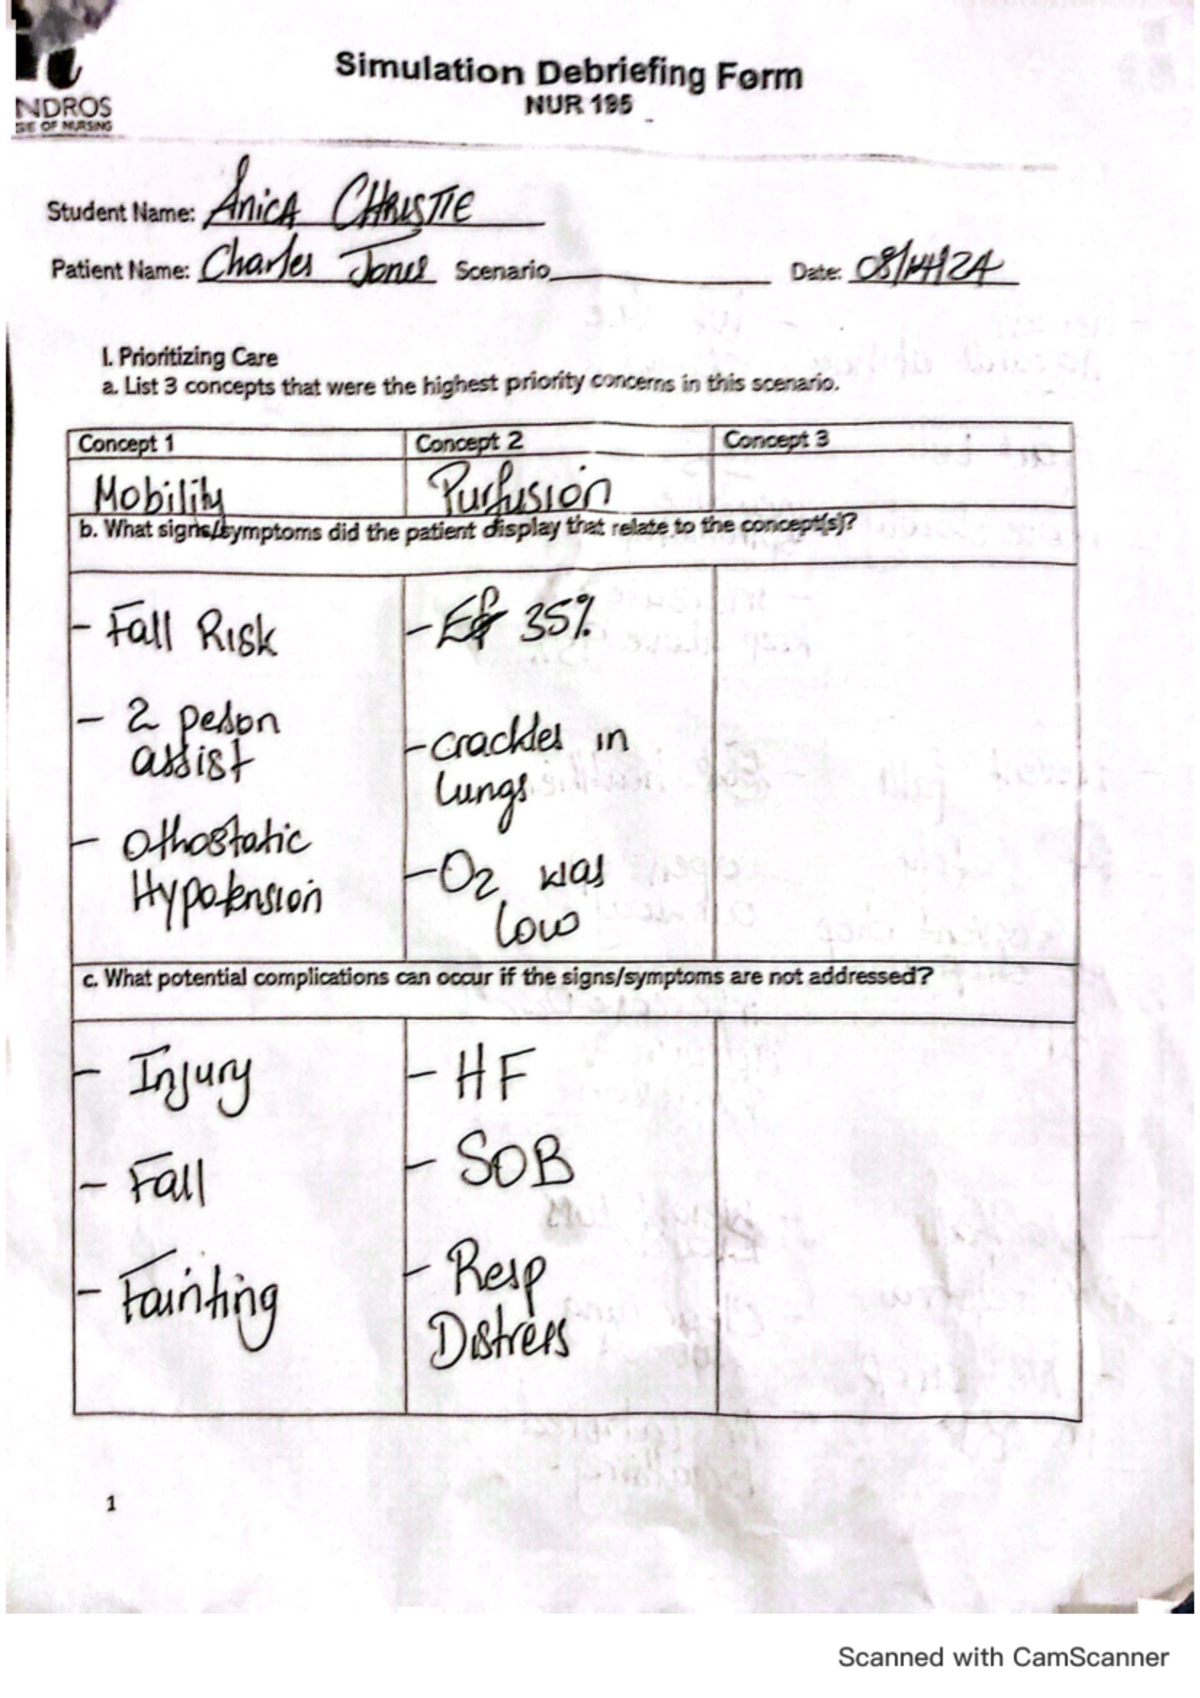 NDROS
GE OF NURSING
Simulation Debriefing Form
NUR 195
Student Name: Anica CHRISTIE
Patient Name: Charles Jones Scenario Date: 08/14/24
I. Prioritizing Care
a. List 3 concepts that were the highest priority concerns in this scenario.
Concept 1 Concept 2 Concept 3
Mobility Purfusion
b. What signs/symptoms did the patient display that relate to the concept(s)?
- Fall Risk
- 2 peson
assist
- Othostatic
Hypotension
- EF 35%
- crackles in
lungs
- O2 was
low
c. What potential complications can occur if the signs/symptoms are not addressed?
- Injury
- Fall
- Fainting
- HF
- SOB
- Resp
Distress
1
Scanned with CamScanner